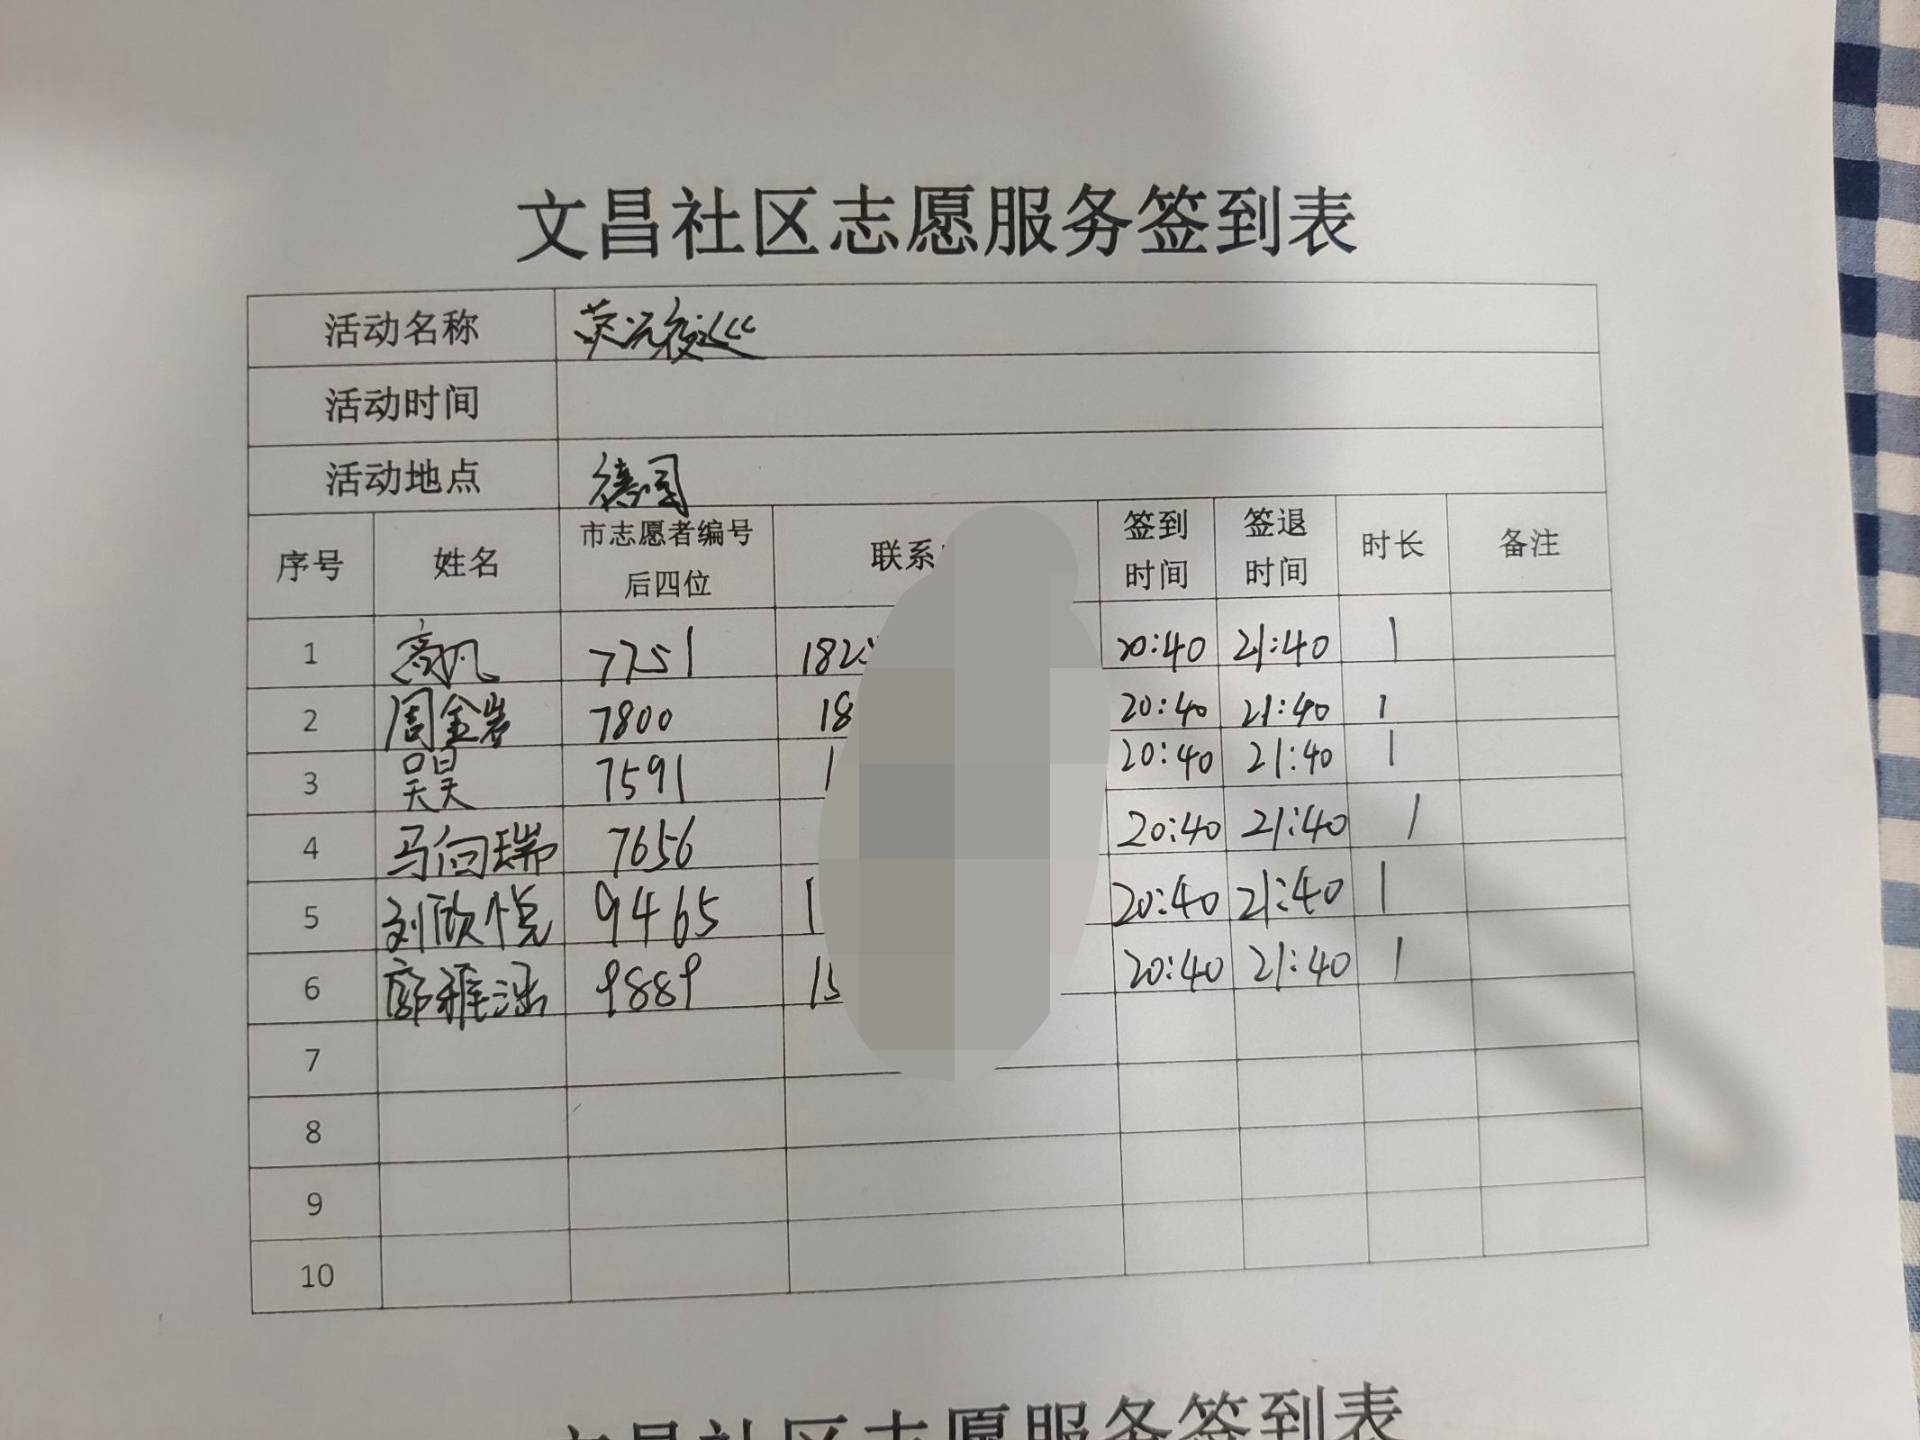 文昌社区志愿服务签到表
活动名称 夜巡
活动时间
活动地点 德园
序号 姓名 市志愿者编号后四位 联系 签到时间 签退时间 时长 备注
1 高凡 7751 182 20:40 21:40 1
2 周金岩 7800 18 20:40 21:40 1
3 吴昊 7591 1 20:40 21:40 1
4 马向瑞 7656 20:40 21:40 1
5 刘欣悦 9465 1 20:40 21:40 1
6 雅涵 9889 15 20:40 21:40 1
7
8
9
10
文昌社区志愿服务签到表